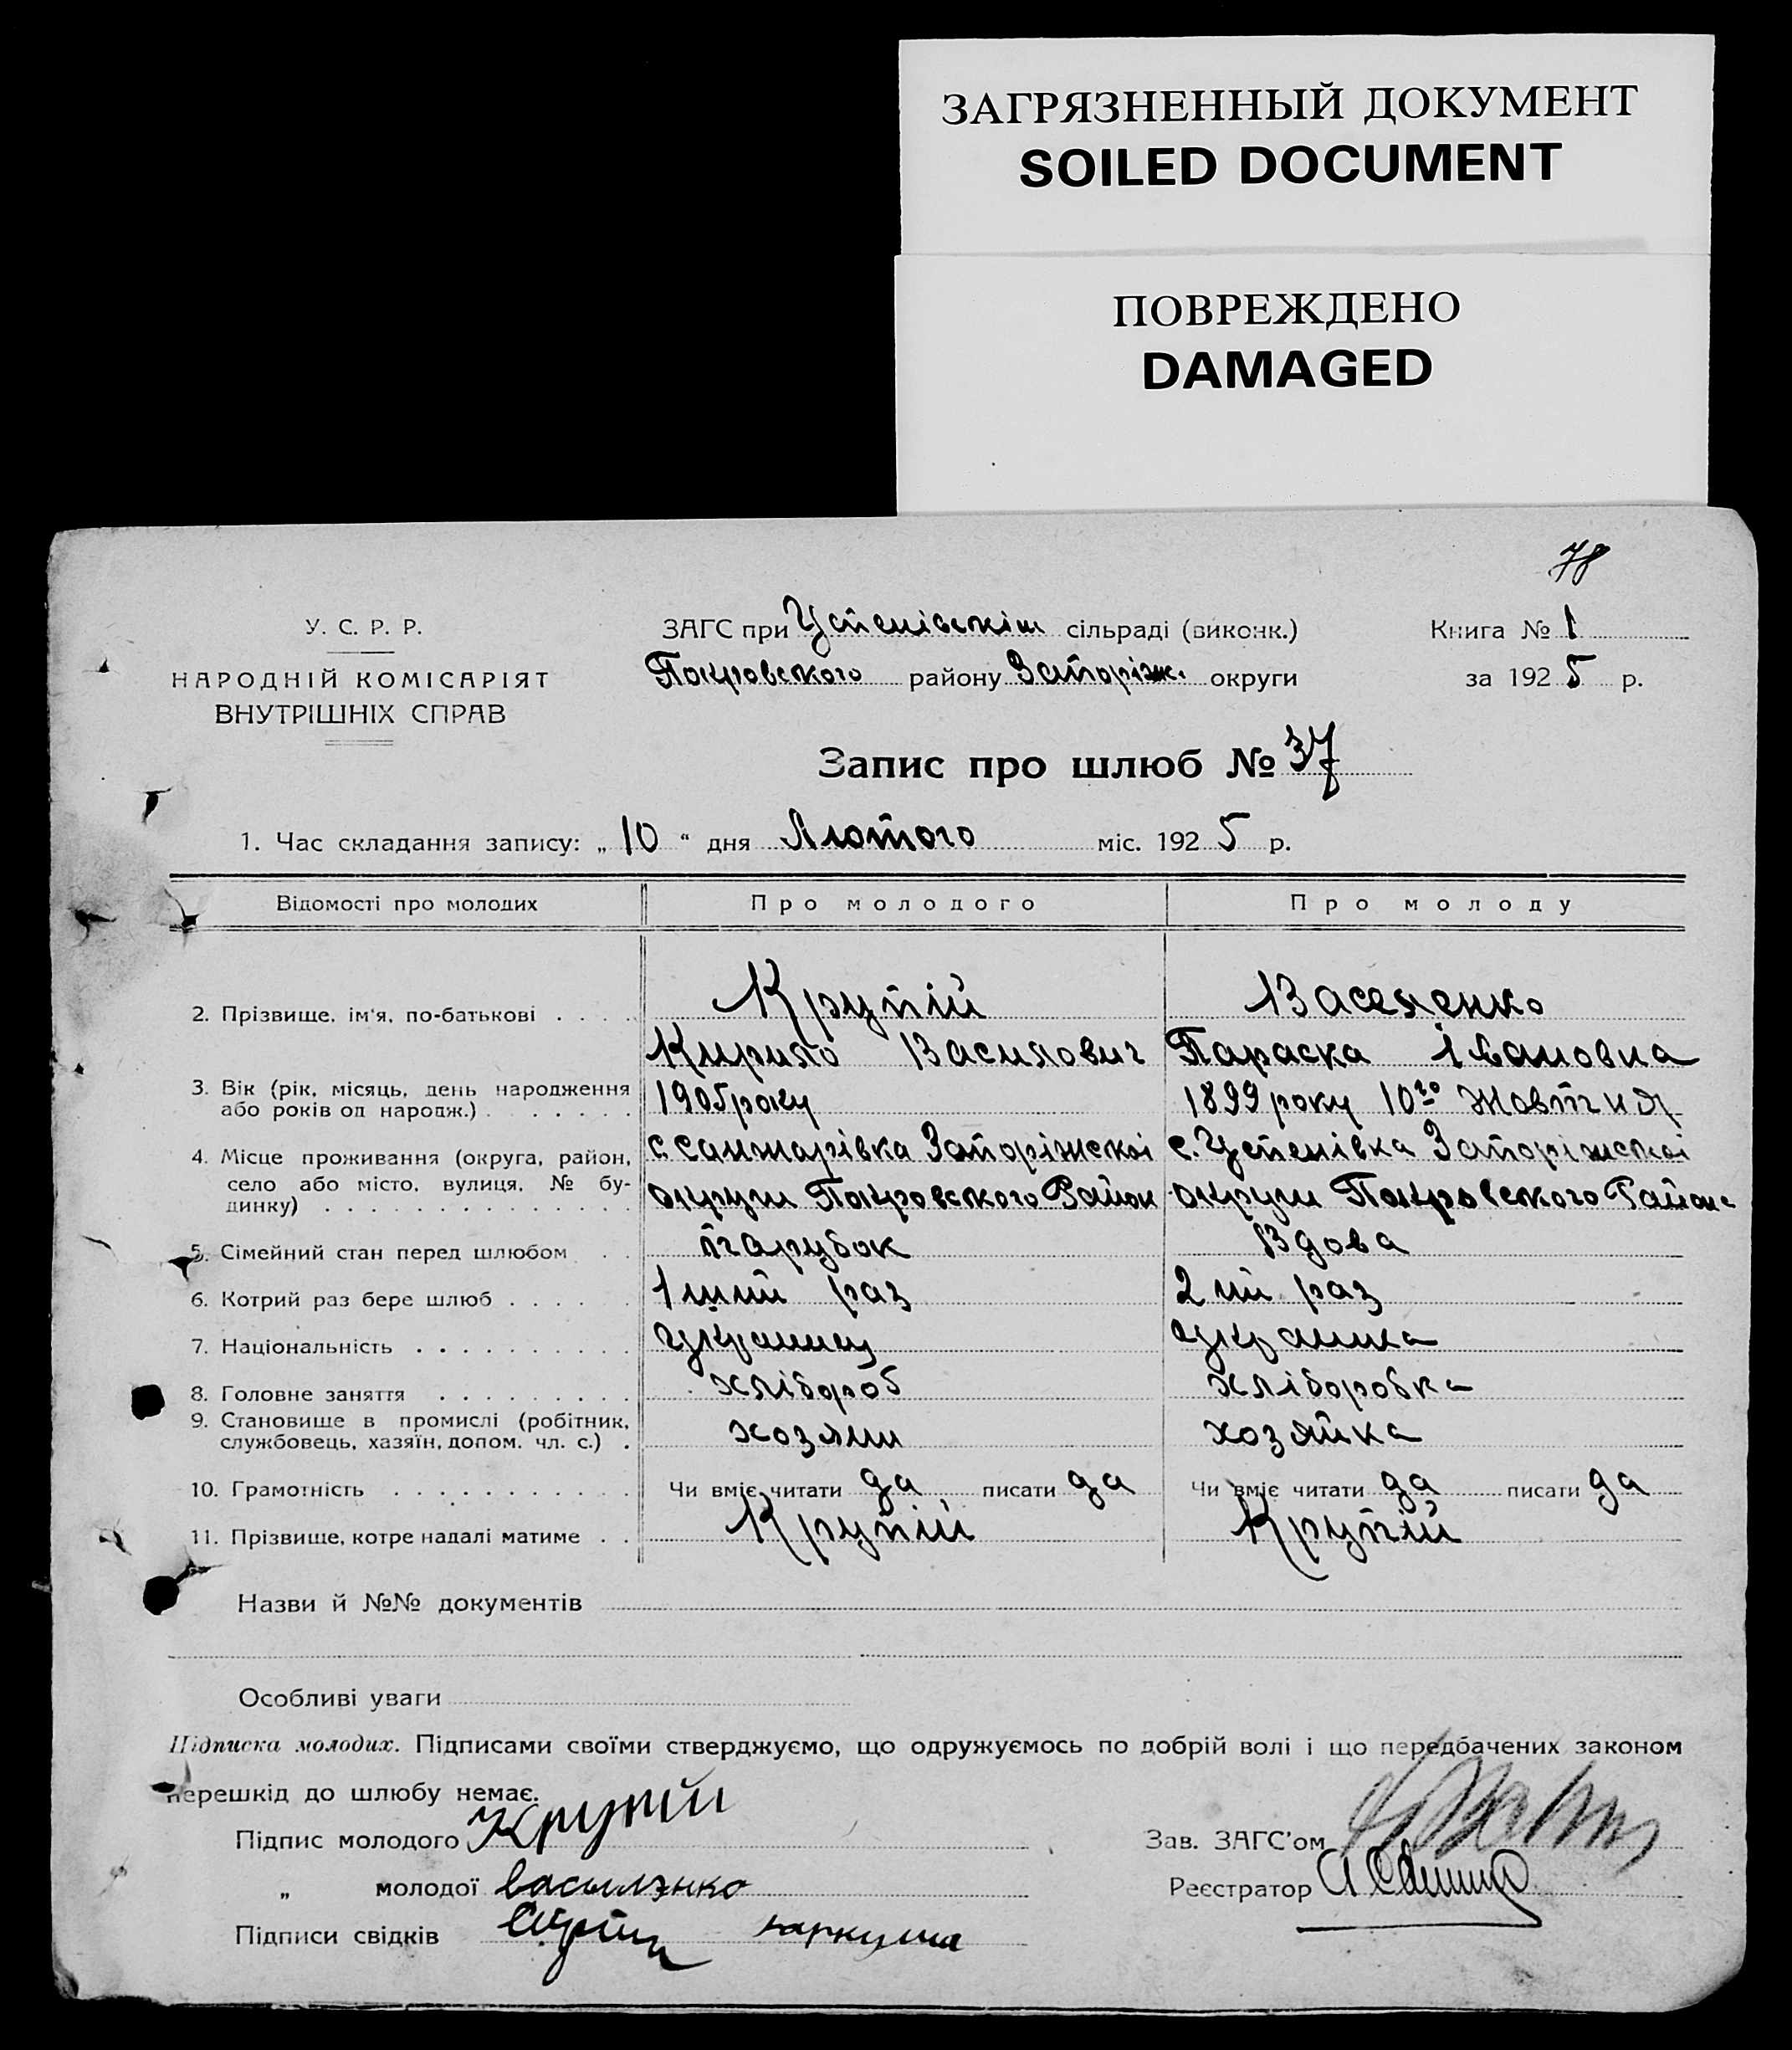 ЗАГРЯЗНЕННЫЙ ДОКУМЕНТ
SOILED DOCUMENT
ПОВРЕЖДЕНО
DAMAGED
78
У. С. Р. Р.
НАРОДНІЙ КОМІСАРІЯТ
ВНУТРІШНІХ СПРАВ
ЗАГС при Успенівскім сільраді (виконк.)
Покровського району Запоріж. округи
Книга № 1
за 1925 р.
Запис про шлюб № 37
1. Час складання запису: „ 10 “ дня Лютого міс. 1925 р.
Відомості про молодих Про молодого Про молоду
2. Прізвище, ім'я, по-батькові . . . . Крупій Васеленко
Кирило Василович Параска Івановна
3. Вік (рік, місяць, день народження
або років од народж.) . . . . . . 1905 року 1899 року 10го Жовтня
4. Місце проживання (округа, район, с. Санжарівка Запоріжскоі с. Успенівка Запоріжскоі
село або місто, вулиця, № бу-
динку) . . . . . . . . . . . . . . округи Покровского Район округи Покровского Район
5. Сімейний стан перед шлюбом . . парубок Вдова
6. Котрий раз бере шлюб . . . . . 1ший раз 2ий раз
7. Національність . . . . . . . . . . Украинец Украинка
8. Головне заняття . . . . . . . . . хлібороб хліборобка
9. Становище в промислі (робітник,
службовець, хазяїн, допом. чл. с.) . хозяин хозяйка
10. Грамотність . . . . . . . . . . . Чи вміє читати да писати да Чи вміє читати да писати да
11. Прізвище, котре надалі матиме . . Крупій Крупій
Назви й №№ документів
Особливі уваги
Підписка молодих. Підписами своїми стверджуємо, що одружуємось по добрій волі і що передбачених законом
перешкід до шлюбу немає.
Підпис молодого Крупий
„ молодої васылэнко
Підписи свідків
Зав. ЗАГС'ом
Реєстратор